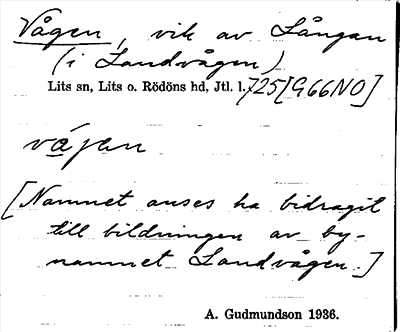 Vågen, vik av Långan
(i Landvågen)
Lits sn, Lits o. Rödöns hd, Jtl. l. 725[G66NO]
vágen
[Namnet anses ha bidragit
till bildningen av by-
namnet Landvågen.]
A. Gudmundson 1936.